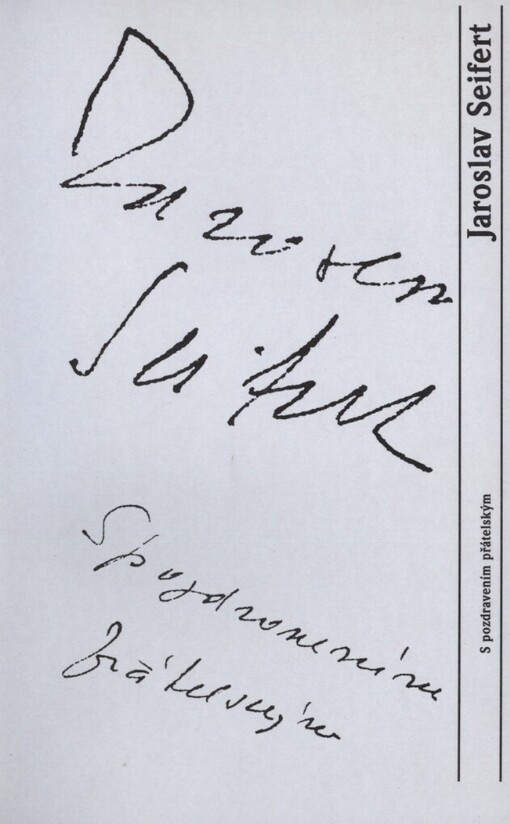 Jaroslav
Seifert
S pozdravením
přátelským
Jaroslav Seifert
S pozdravením přátelským